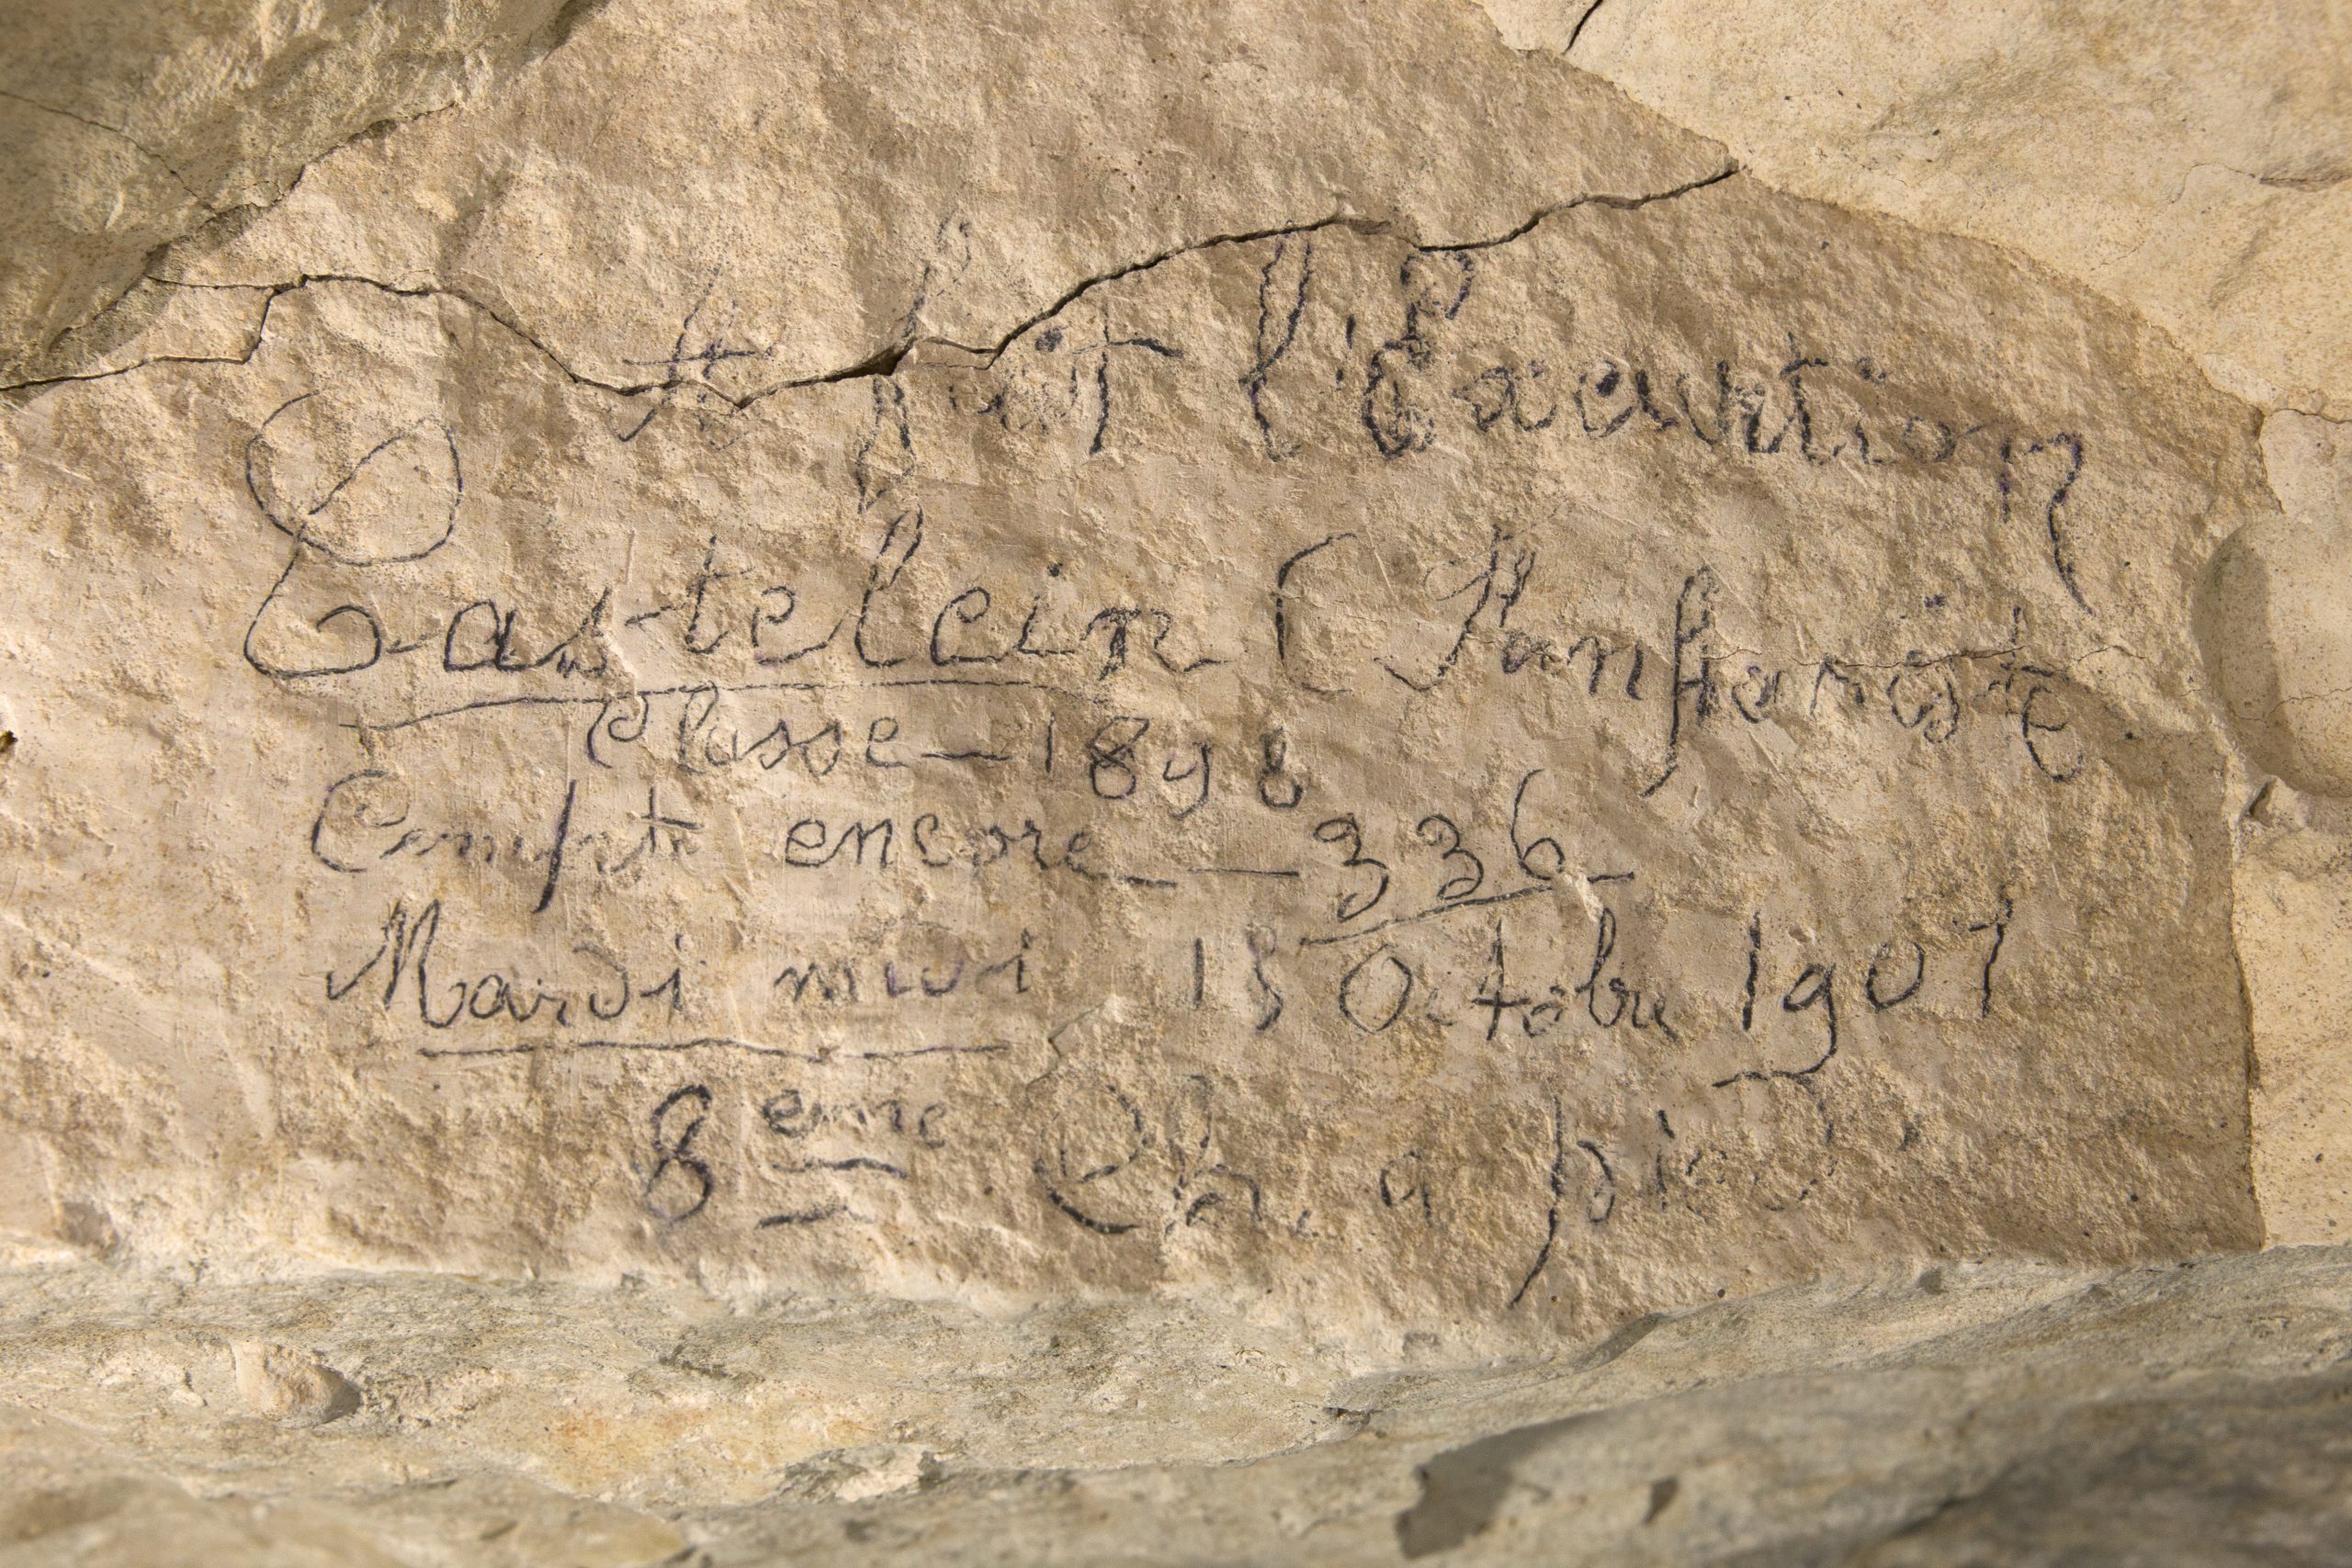 fait l'Excurtion
Castelein (Fanfariste
Classe - 1898
Compt encore - 336
Mardi midi 15 Octobre 1901
8eme Ch. a pied